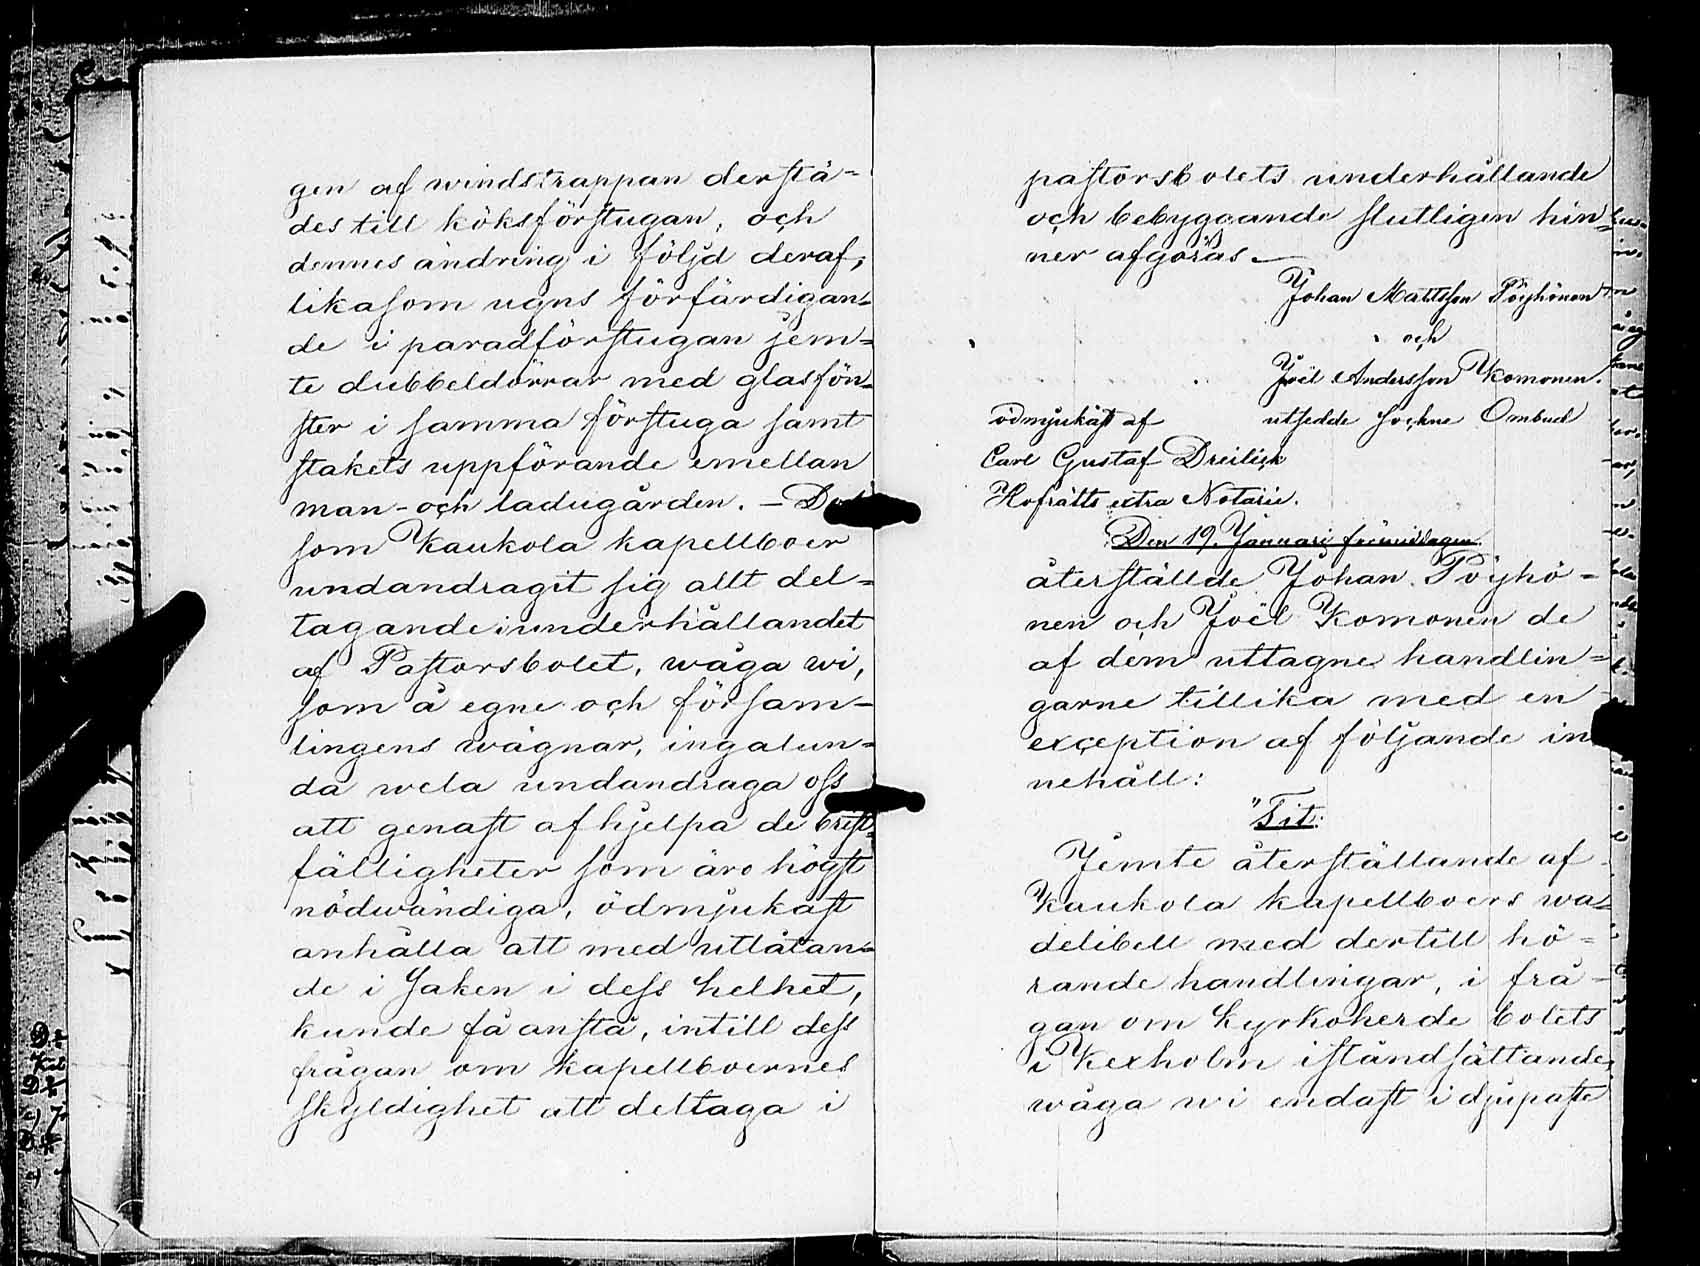 gen af windstrappan derstä-
des till köksförstugan, och
dennes ändring i följd deraf,
likasom ugns förfärdigan-
de i paradförstugan jem-
te dubbeldörrar med glasfön-
ster i samma förstuga samt
stakets uppförande emellan
man- och ladugården. —
som Kaukola kapellboer
undandragit sig allt del-
tagande i underhållandet
af Pastorsbolet, wåga wi,
som å egne och försam-
lingens wägnar, ingalun-
da wela undandraga oss
att genast afhjelpa de brist-
fälligheter som äro högst
nödwändiga, ödmjukast
anhålla att med utlåtan-
de i saken i dess helhet,
kunde få anstå, intill dess
frågan om kapellboernes
skyldighet att deltaga i
pastorsbolets underhållande
och bebyggande slutligen hin-
ner afgöras. —
Johan Mattsson Pöyhönen
och
Joël Andersson Komonen.
utsedde sockne Ombud
ödmjukast af
Carl Gustaf Dreilick
Hofrätts extra Notarie.
Den 19. Januari förmiddagen
återställde Johan Pöyhö-
nen och Joël Komonen de
af dem uttagne handlin-
garne tillika med en
exception af följande in
nehåll:
"Tit:
Jemte återställande af
Kaukola kapellboers wa-
delibell med dertill hö-
rande handlingar, i frå-
gan om kyrkoherde bolets
i Kexholm iståndsättande,
wåga wi endast i djupaste